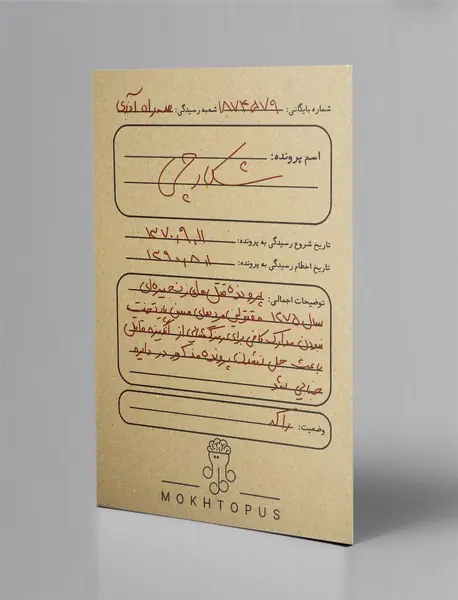 شماره بایگانی: ۱۸۷۴۵۷۹ شعبه رسیدگی: سهراه آذری
اسم پرونده:
شکارچی
تاریخ شروع رسیدگی به پرونده: ۱۳۷۰،۹،۱۱
تاریخ اختتام رسیدگی به پرونده: ۱۳۹۰،۸،۱
توضیحات اجمالی: پرونده قتل‌های زنجیره‌ای
سال ۱۳۷۵ مقتولین مردهای مسن پایتخت
نبودن مدارک کافی برای رمزگشایی از انگیزه قاتل
باعث حل نشدن پرونده مذکور در دایره
جنایی شد
وضعیت: راکد
MOKHTOPUS